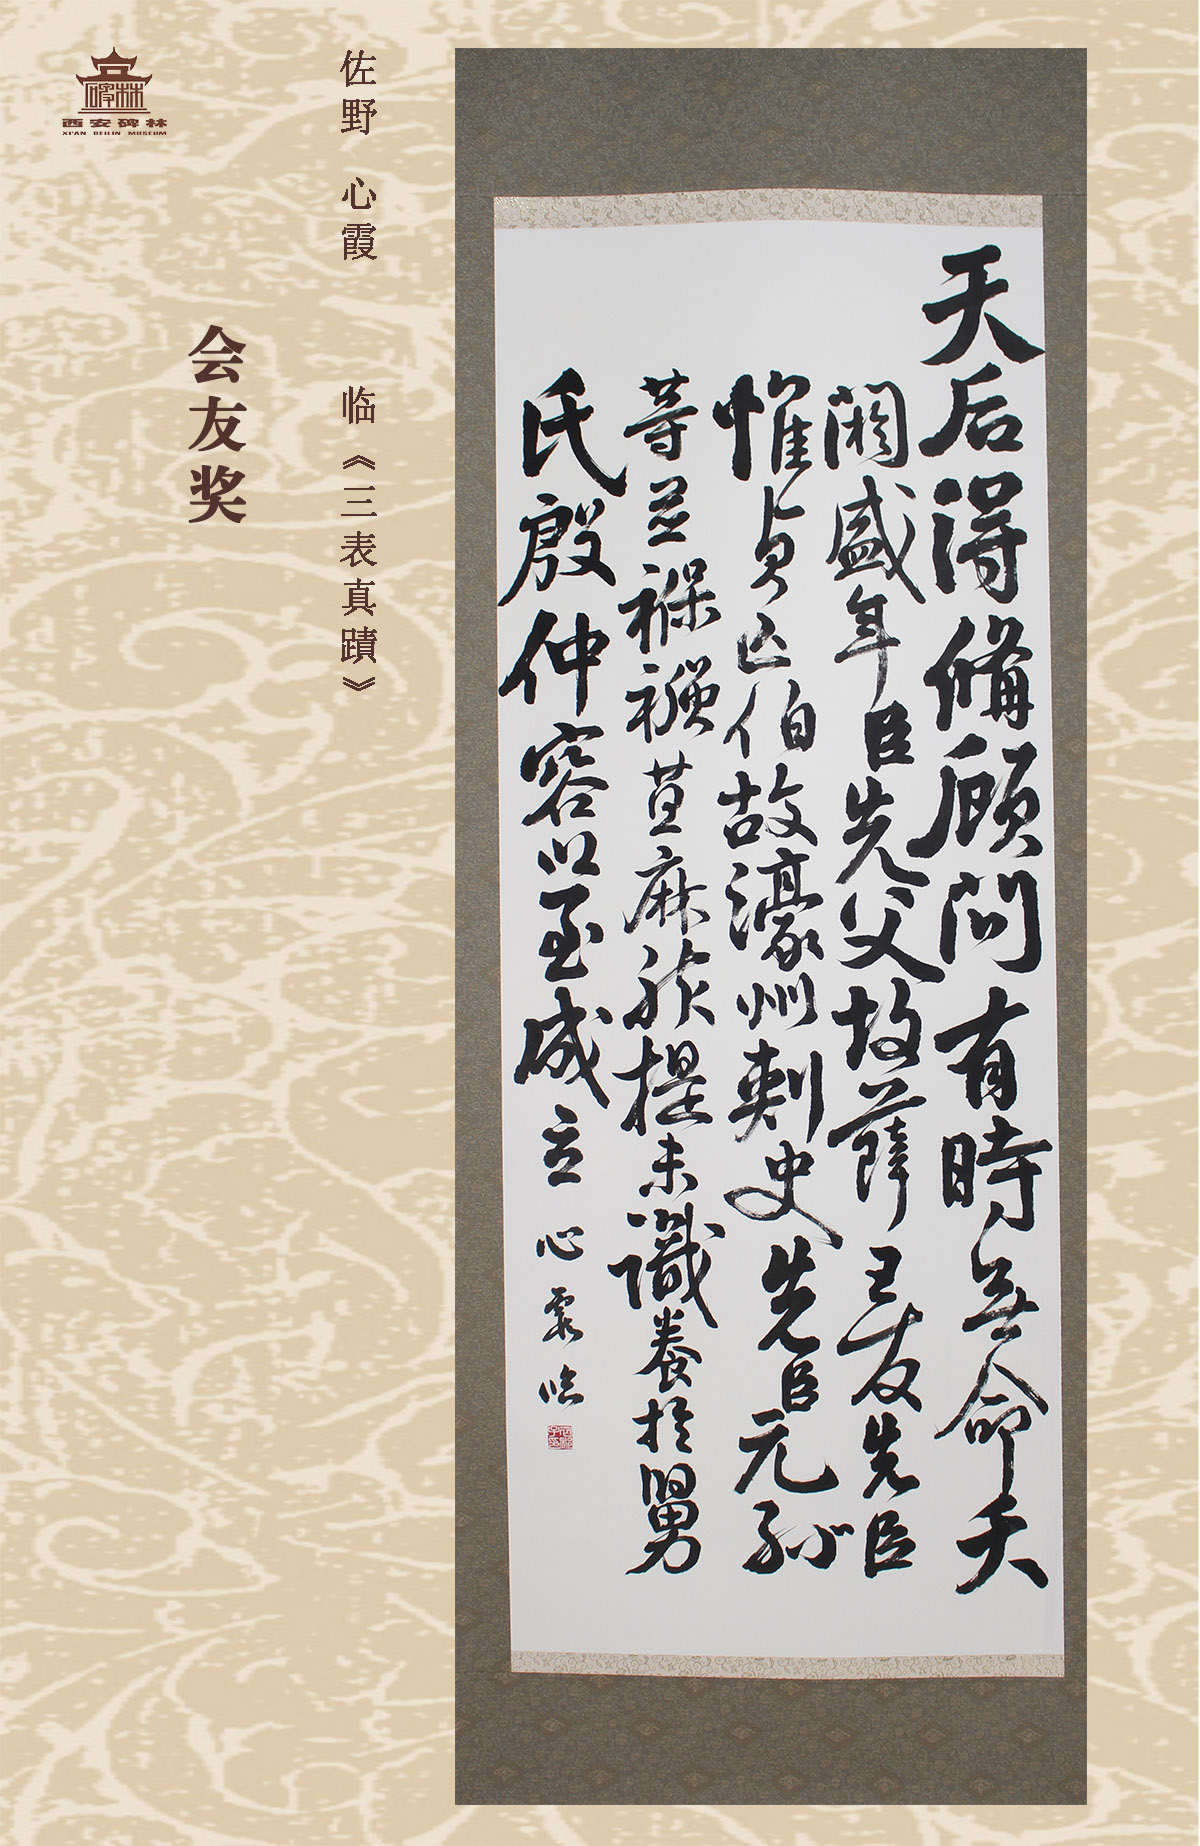 西安碑林
XI'AN BEILIN MUSEUM
佐野 心霞 临《三表真蹟》
会友奖
天后得備顧問有時無命天
闕盛年臣先父故薛王友先臣
惟貞亡伯故濠州刺史先臣元孫
等並褓襁苴麻孩提未識養於舅
氏殷仲容以至成立 心霞臨